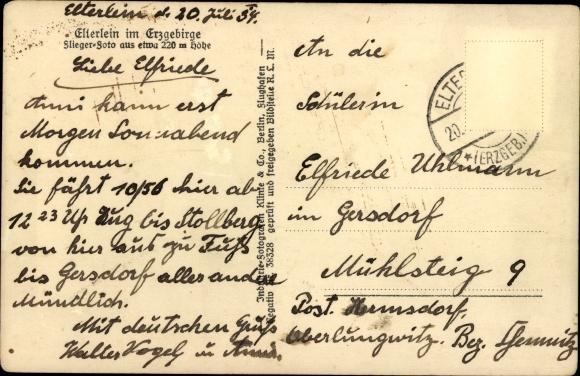 Elterlein d. 20. Juli 34.
Elterlein im Erzgebirge
Flieger-Foto aus etwa 220 m Höhe
Liebe Elfriede
Anni kann erst
Morgen Sonnabend
kommen.
Sie fährt 10/56 hier ab
12 23 Up Zug bis Stollberg
von hier aus zu Fuß
bis Gersdorf alles andere
Mündlich.
Mit deutschen Gruß
Walter Vogel u Anni.
Industrie-Fotografen Klinke & Co., Berlin, Flughafen
Negativ 38328 geprüft und freigegeben Bildstelle R. L. M.
ELTER
20.
*(ERZGEB.)
An die
Schülerin
Elfriede Uhlmann
im Gersdorf
Mühlsteig 9
Post. Hermsdorf,
Oberlungwitz. Bez. Chemnitz